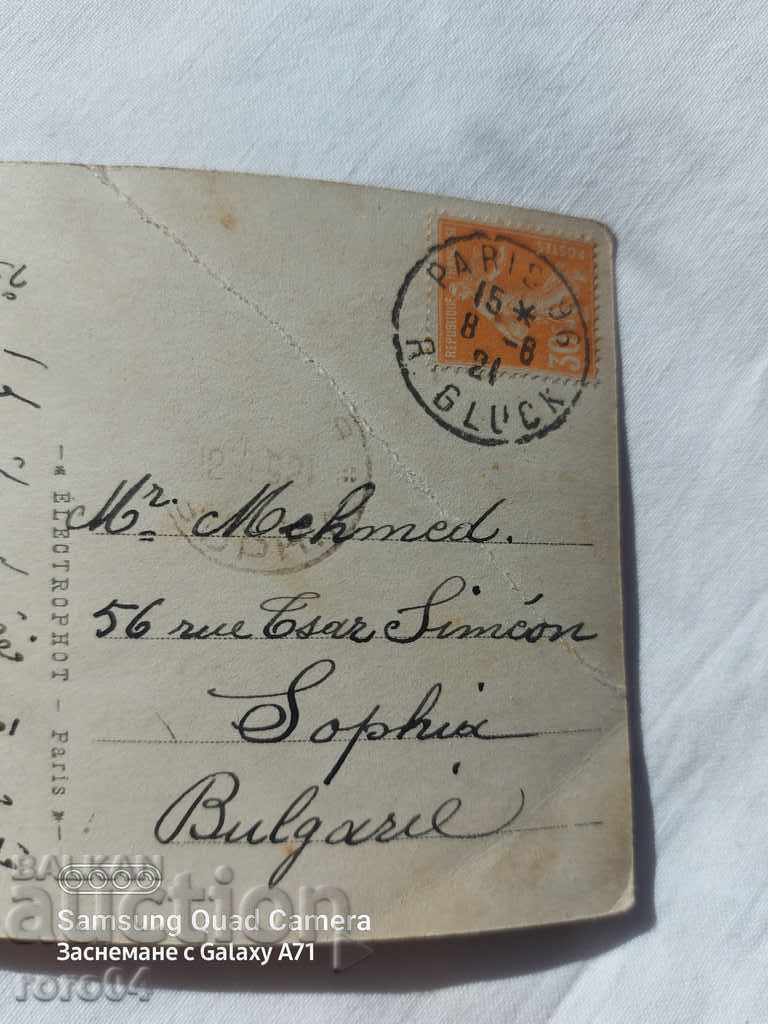 REPUBLIQUE
POSTES
30
PARIS 96
15 *
8 -8
21
R. GLUCK
Mr. Mehmed.
56 rue Tsar Siméon
Sophia
Bulgarie
—* ÉLECTROPHOT - Paris *—
BALKAN
auction
Samsung Quad Camera
Заснемане с Galaxy A71
roro04